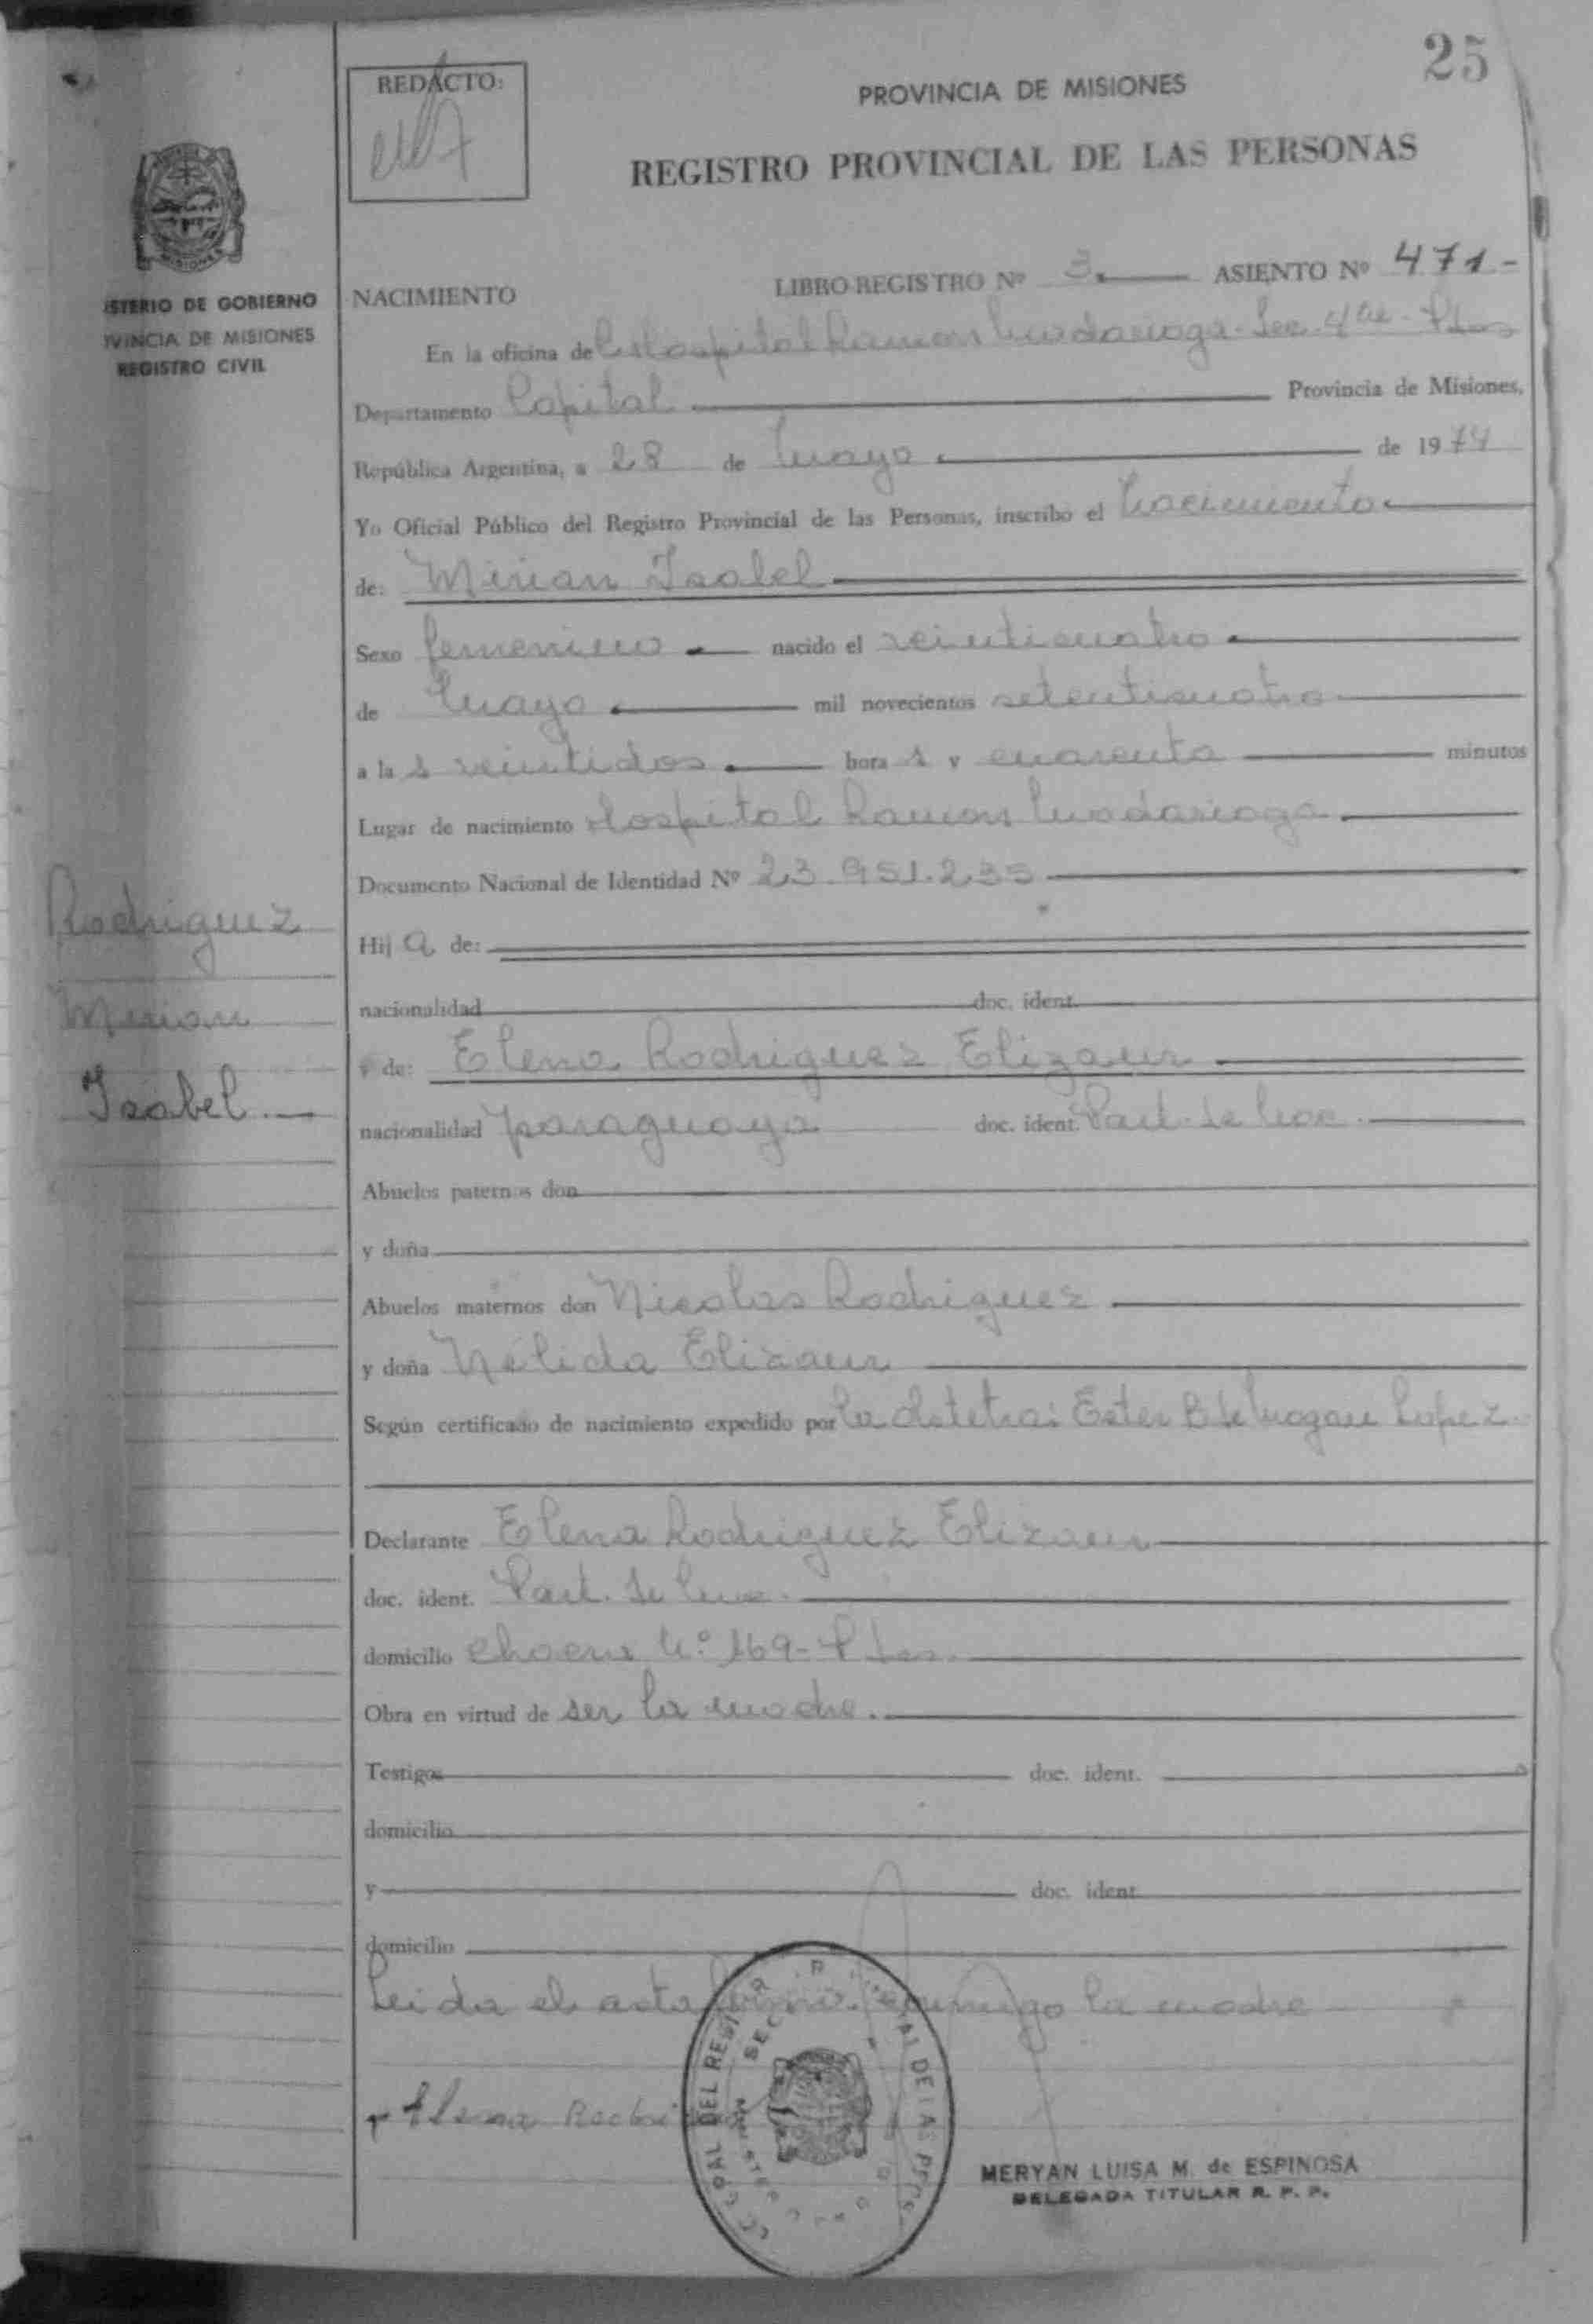 25
REDACTO:
PROVINCIA DE MISIONES
REGISTRO PROVINCIAL DE LAS PERSONAS
MISIONES
ISTERIO DE GOBIERNO
IVINCIA DE MISIONES
REGISTRO CIVIL
LIBRO REGISTRO Nº 3. ASIENTO Nº 471-
NACIMIENTO
En la oficina de Hospital Ramon Madariaga - Sec. 4ta - Pdas
Departamento Capital Provincia de Misiones,
República Argentina, a 28 de Mayo de 1974
Yo Oficial Público del Registro Provincial de las Personas, inscribo el Nacimiento
de: Mirian Isabel
Sexo femenino nacido el veinticuatro
de Mayo mil novecientos setenticuatro
a la s veintidos hora s y cuarenta minutos
Lugar de nacimiento Hospital Ramon Madariaga
Documento Nacional de Identidad Nº 23.951.235
Rodriguez
Mirian
Isabel.
Hij a de:
nacionalidad doc. ident.
y de: Elena Rodriguez Elizaur
nacionalidad paraguaya doc. ident.
Abuelos paternos don
y doña
Abuelos maternos don Nicolas Rodriguez
y doña Nélida Elizaur
Según certificado de nacimiento expedido por la obstetra: Ester B de Lopez
Declarante Elena Rodriguez Elizaur
doc. ident.
domicilio Nº 169 - Pdas.
Obra en virtud de ser la madre.
Testigos doc. ident.
domicilio
y doc. ident.
domicilio
Leida el acta firma conmigo la madre
Elena
MERYAN LUISA M. de ESPINOSA
DELEGADA TITULAR R. P. P.